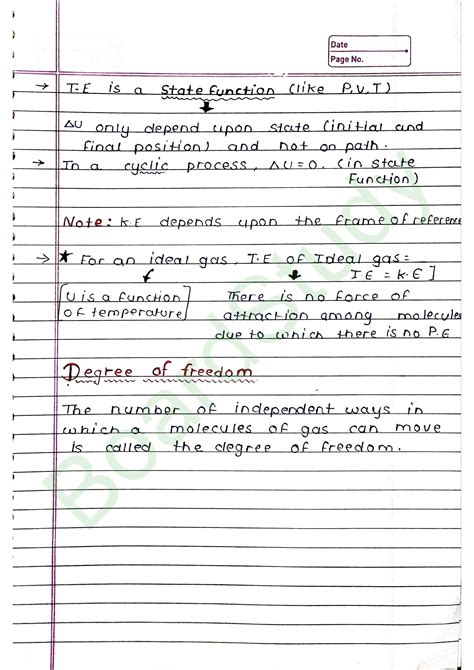 Date
Page No.
→ I.E is a State function (like P,V,T)
ΔU only depend upon state (initial and
final position) and not on path.
→ In a cyclic process, ΔU=0. (in state
Function)
Note: K.E depends upon the frame of reference
→ ★ For an ideal gas, I.E of Ideal gas:
I E = K.E ]
[U is a function
of temperature]
There is no force of
attraction among molecules
due to which there is no P.E
Degree of freedom
The number of independent ways in
which a molecules of gas can move
is called the degree of freedom.
BoardStudy